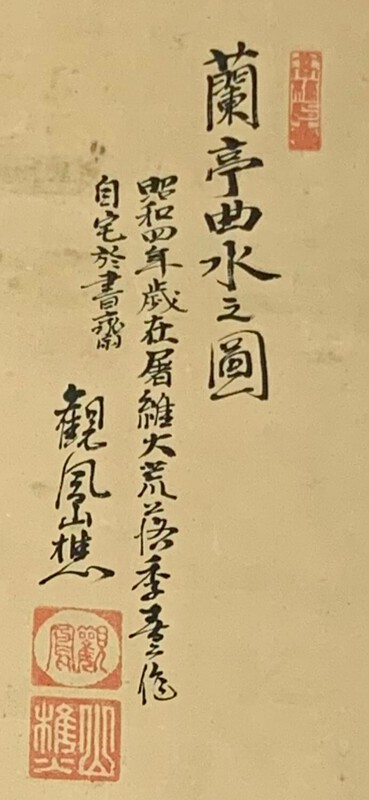 蘭亭曲水之圖
昭和四年歲在屠維大荒落季春作
自宅於書齋
觀風山樵
觀風
山樵